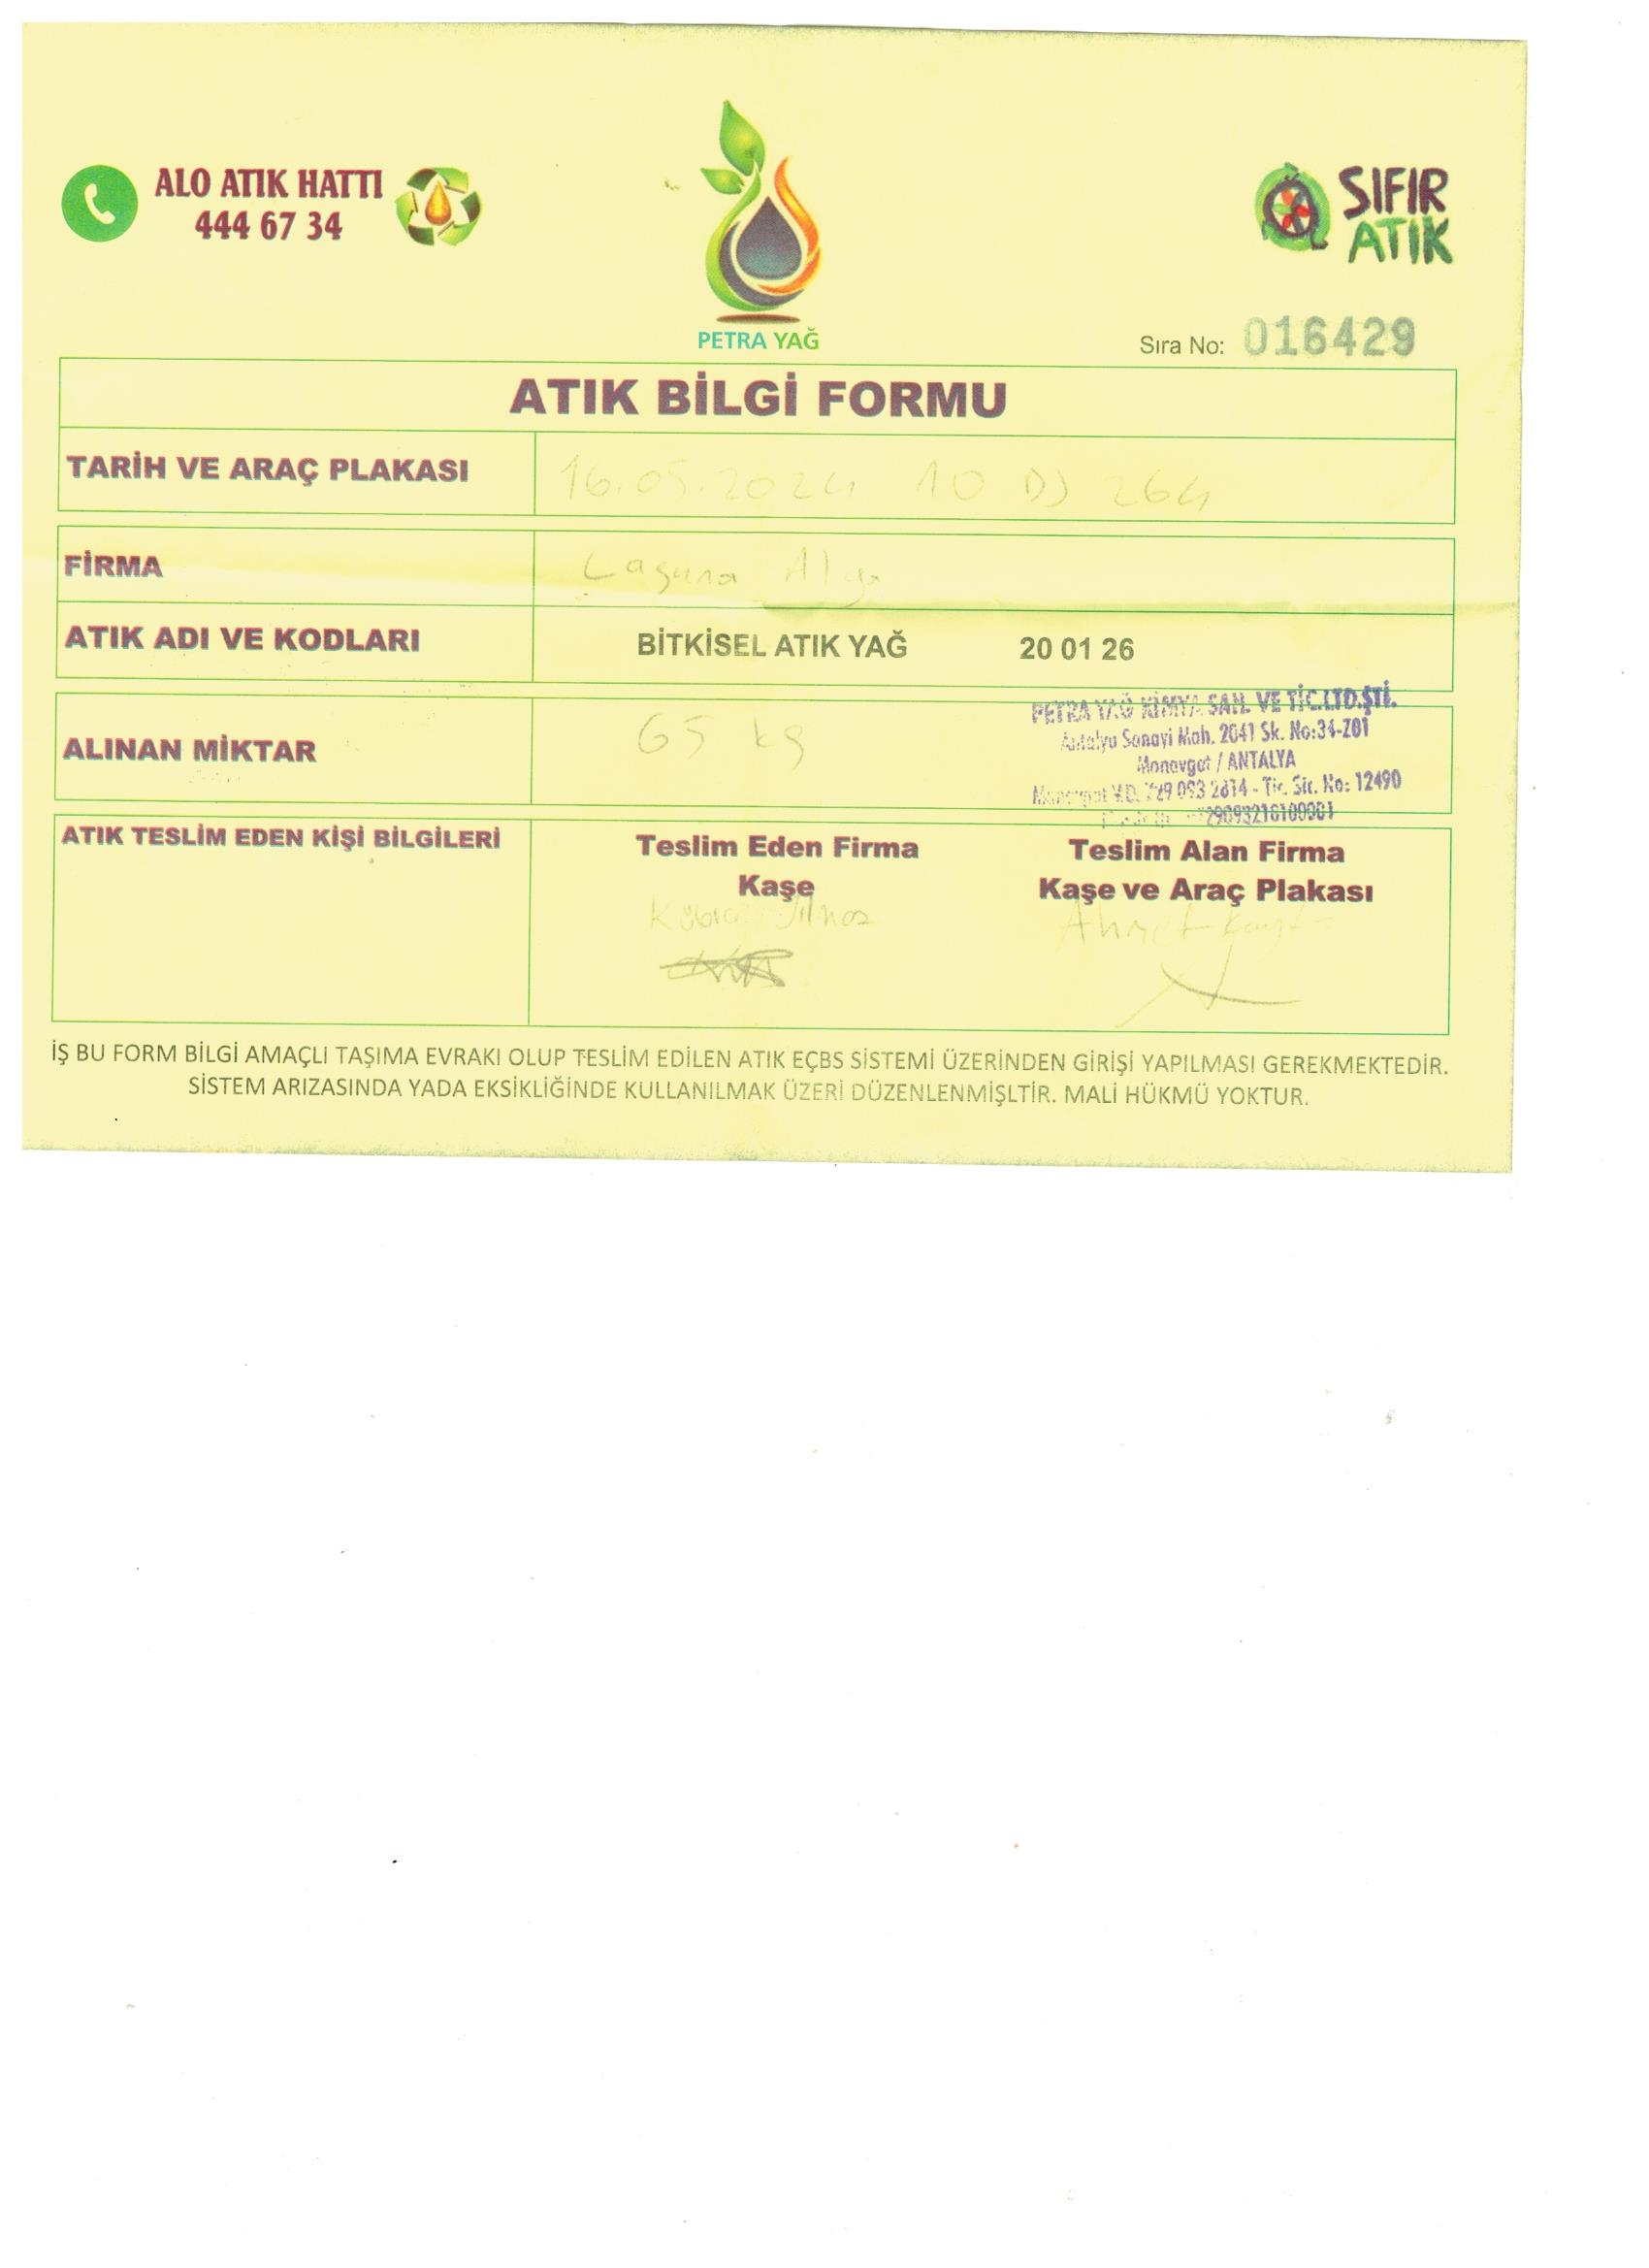 ALO ATIK HATTI
444 67 34
SIFIR
ATIK
PETRA YAĞ
Sıra No: 016429
ATIK BİLGİ FORMU
TARİH VE ARAÇ PLAKASI 16.05.2024 10 DJ 264
FİRMA Laguna Alya
ATIK ADI VE KODLARI BİTKİSEL ATIK YAĞ 20 01 26
PETRA YAĞ KİMYA SAN. VE TİC.LTD.ŞTİ.
Antalya Sanayi Mah. 2041 Sk. No:34-Z01
Manavgat / ANTALYA
Manavgat V.D. - Tic. Sic. No: 12490
ALINAN MİKTAR 65 kg
ATIK TESLİM EDEN KİŞİ BİLGİLERİ
Teslim Eden Firma
Kaşe
Kübra Yılmaz
Teslim Alan Firma
Kaşe ve Araç Plakası
Ahmet
İŞ BU FORM BİLGİ AMAÇLI TAŞIMA EVRAKI OLUP TESLİM EDİLEN ATIK EÇBS SİSTEMİ ÜZERİNDEN GİRİŞİ YAPILMASI GEREKMEKTEDİR.
SİSTEM ARIZASINDA YADA EKSİKLİĞİNDE KULLANILMAK ÜZERİ DÜZENLENMİŞLTİR. MALİ HÜKMÜ YOKTUR.